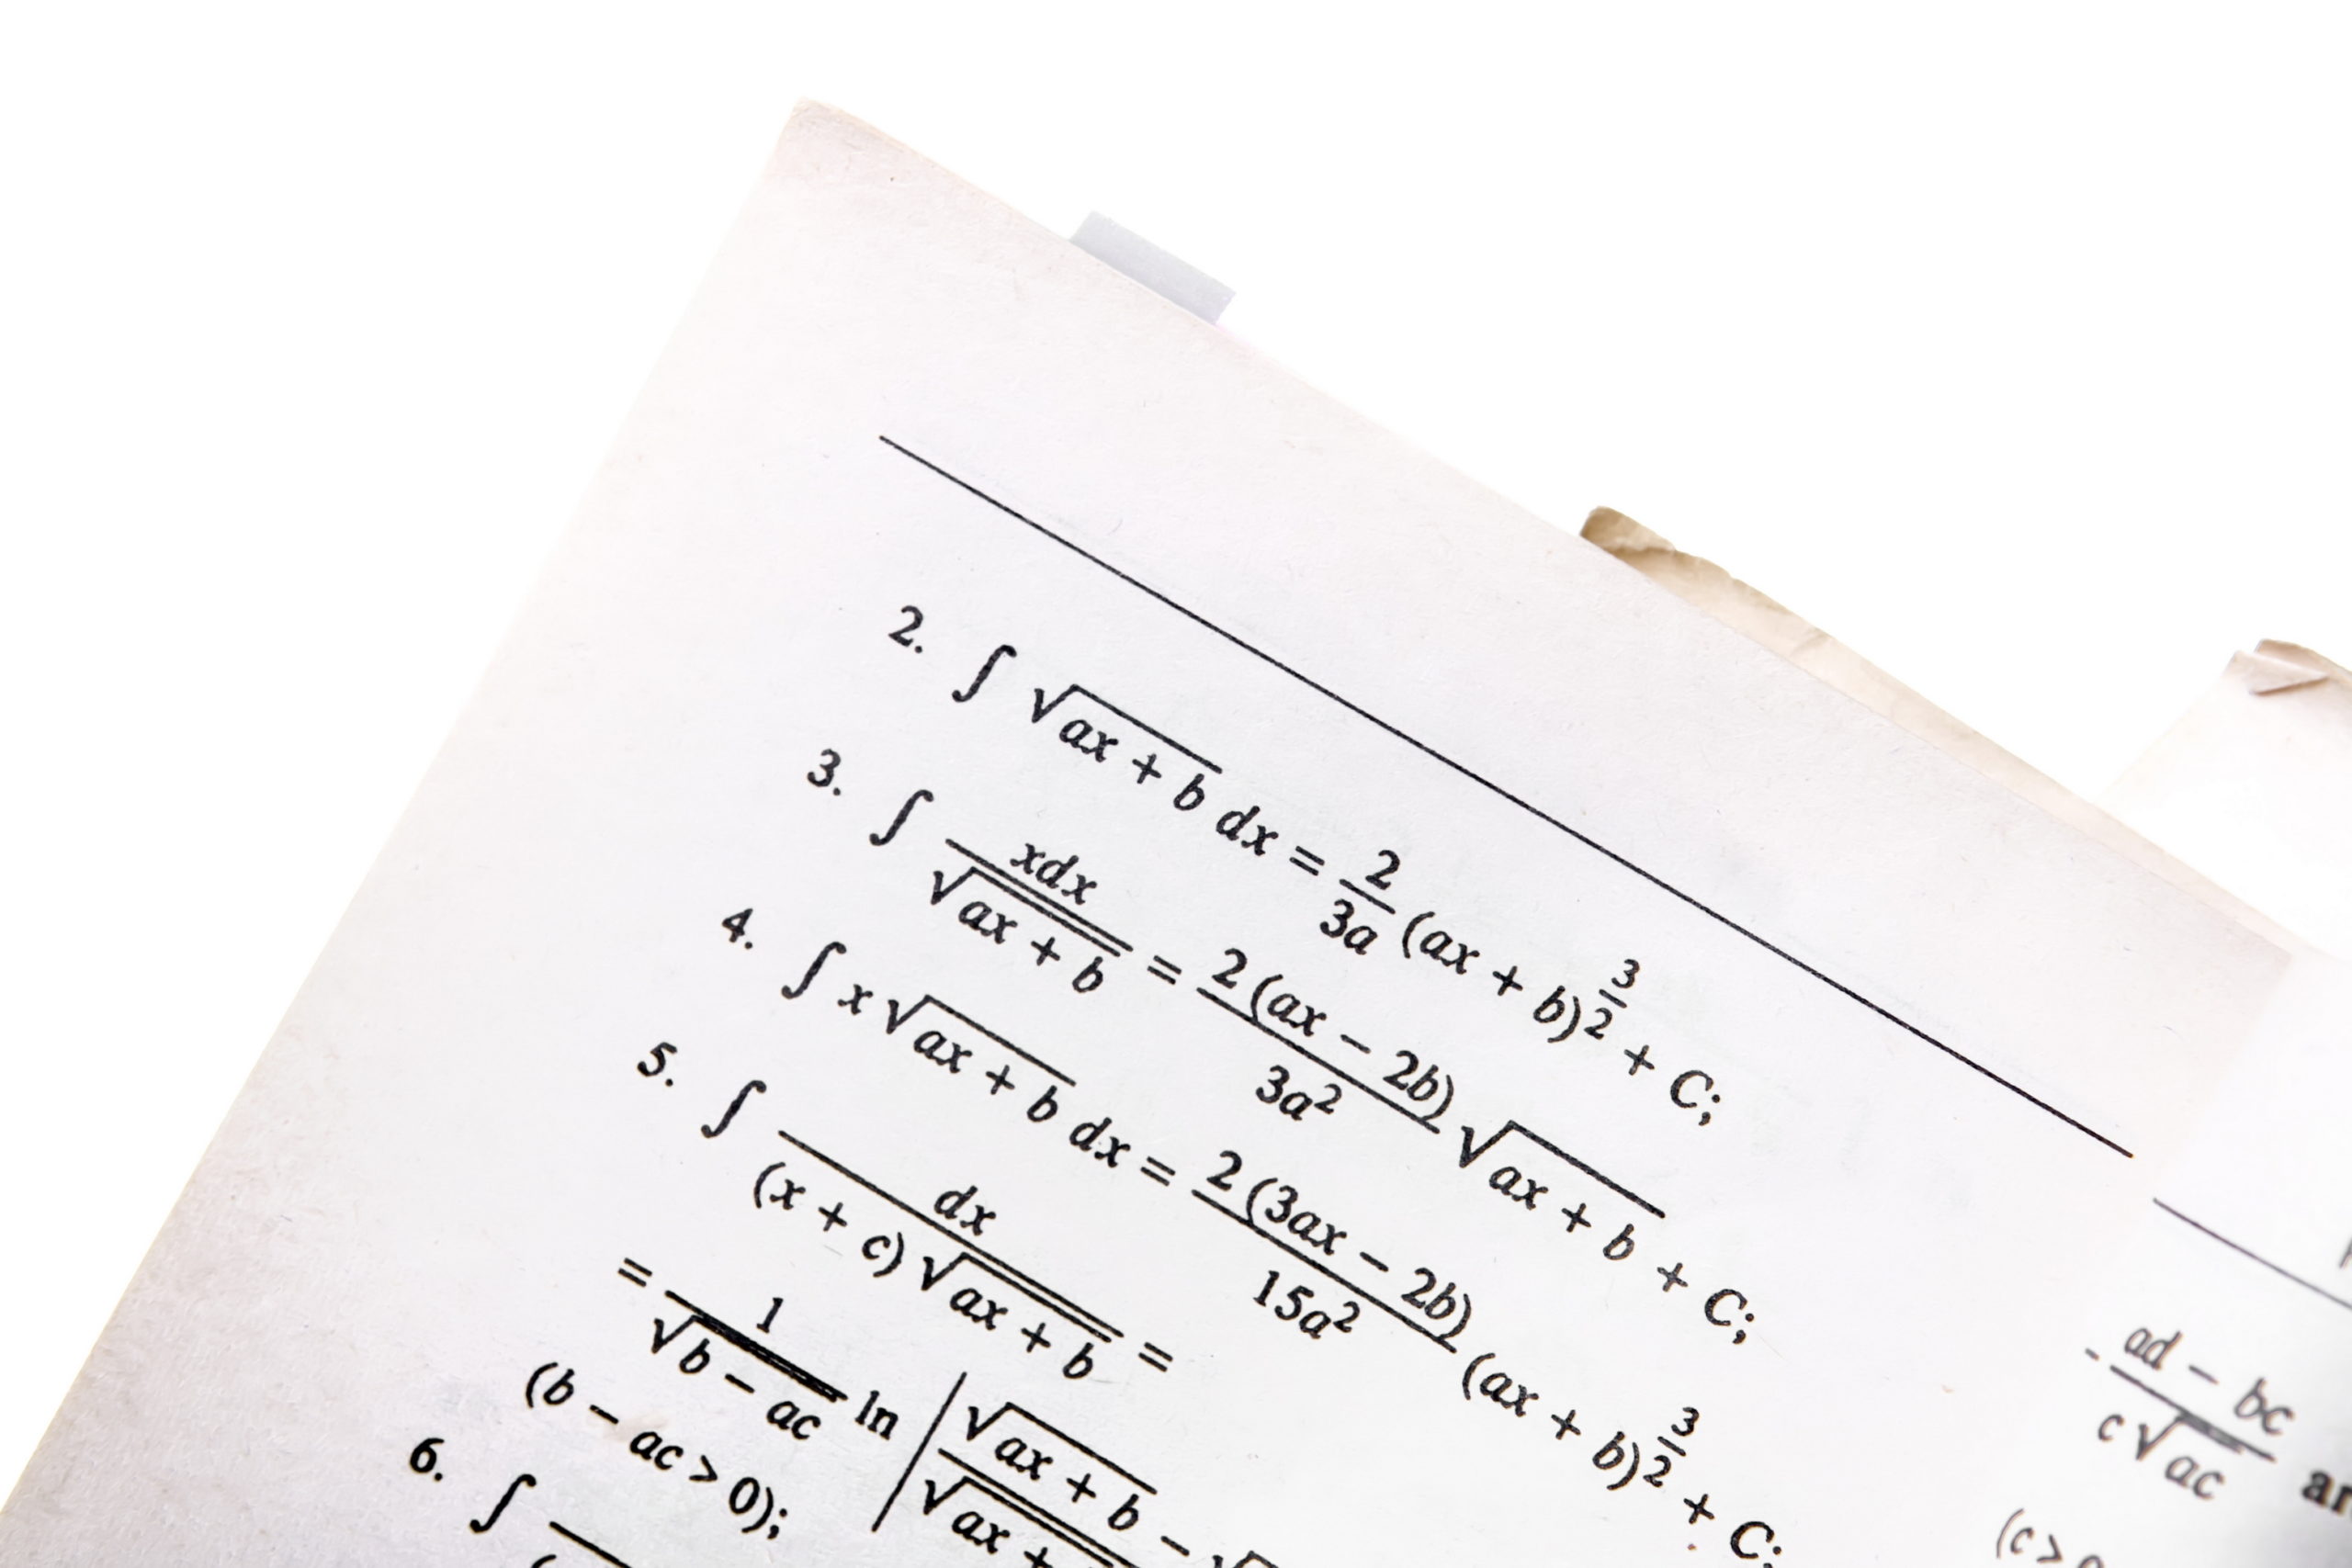 2. ∫ √(ax + b) dx = 2/3a (ax + b)^(3/2) + C;
3. ∫ xdx/√(ax + b) = 2(ax − 2b)/3a² √(ax + b) + C;
4. ∫ x√(ax + b) dx = 2(3ax − 2b)/15a² (ax + b)^(3/2) + C;
5. ∫ dx/((x + c)√(ax + b)) =
= 1/√(b − ac) ln |√(ax + b) − √
√(ax +
(b − ac > 0);
6. ∫
- (ad − bc)/(c√(ac))
(c >